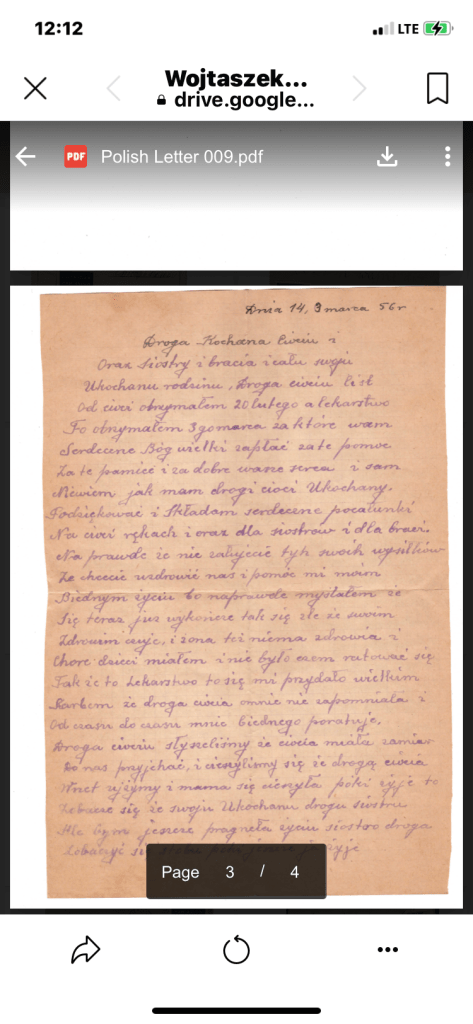 12:12
LTE
Wojtaszek...
drive.google...
PDF Polish Letter 009.pdf
Dnia 14, 3 marca 56 r
Droga Kochana Ciociu i
Oraz Siostry i bracia i cału swoju
Ukochanu rodzinu, Droga ciociu list
Od cioci obzymałem 20 lutego a lekarstwo
To obzymałem 3go marca za które wam
Serdeczne Bóg wielki zapłać za te pomoc
Za te pamięć i za dobre wasze serca i sam
Niewiem jak mam drogi cioci Ukochany,
Podziękować i Składam serdeczne pocałunki
Na cioci rękach i oraz dla siostrów i dla braci
Na prawde że nie żałujecie tych swoich wysiłków
Że chcecie uzdrowić nas i pomóc mi moim
Biednym życiu bo naprawde myslałem że
Się teraz już wykończe tak się źle że swoim
Zdrowim czuje, i żona też niema zdrowia i
Chore dzieci miałem i nie było czem ratować się
Tak że to Lekarstwo to się mi przydało wielkim
Skarbem że droga ciocia omnie nie zapomniała i
Od czasu do czasu mnie biednego poratuje,
Droga ciociu słyszeliśmy że ciocia miała zamiar
Do nas przyjchać, i cieszyliśmy się że drogą ciocia
Wnet ujżymy i mama się cieszyła póki żyje to
Zobacze się że swoju Ukochanu drogu siostru
Ale bym jeszcze pragneła życiu siostro droga
Zobaczyć się żyje
Page 3 / 4